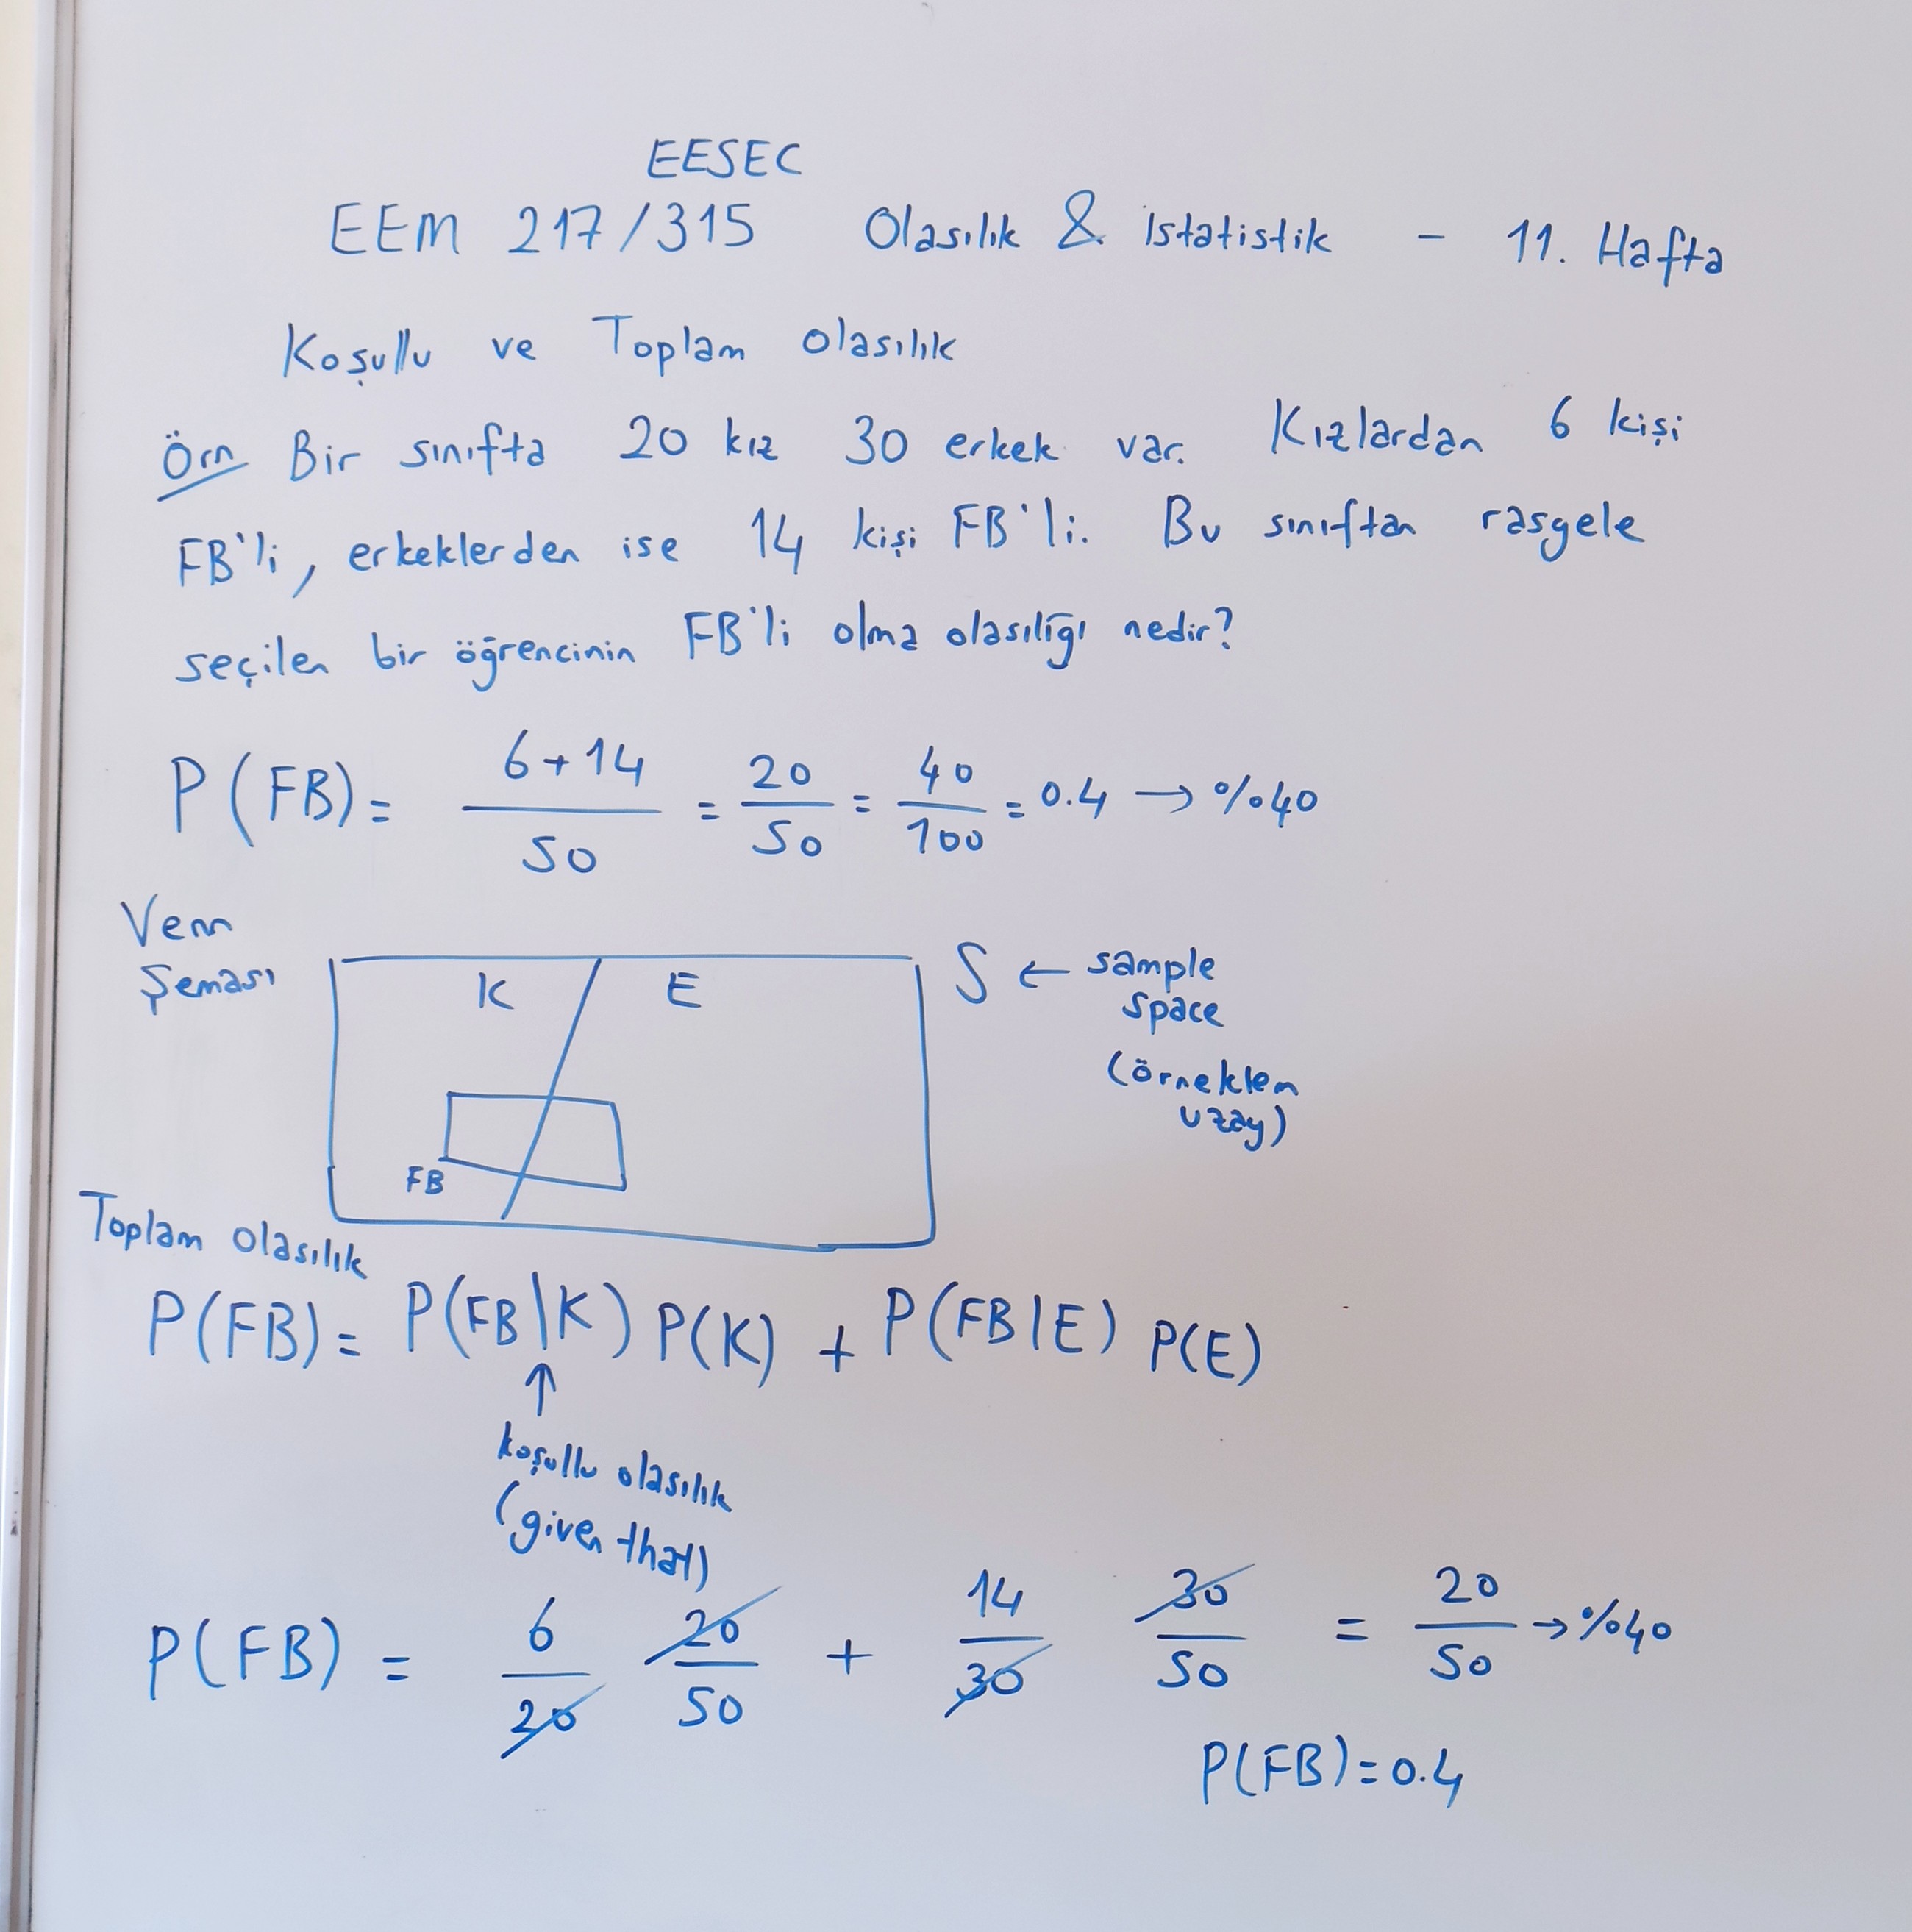 EESEC
EEM 217/315 Olasılık & istatistik - 11. Hafta
Koşullu ve Toplam olasılık
Örn Bir sınıfta 20 kız 30 erkek var. Kızlardan 6 kişi
FB'li, erkeklerden ise 14 kişi FB'li. Bu sınıftan rasgele
seçilen bir öğrencinin FB'li olma olasılığı nedir?
P(FB) = (6+14)/50 = 20/50 = 40/100 = 0.4 → %40
Venn
Şeması
K E S ← sample
space
(örneklem
uzay)
FB
Toplam Olasılık
P(FB) = P(FB|K) P(K) + P(FB|E) P(E)
↑
koşullu olasılık
(given that)
P(FB) = 6/20 20/50 + 14/30 30/50 = 20/50 → %40
P(FB) = 0.4